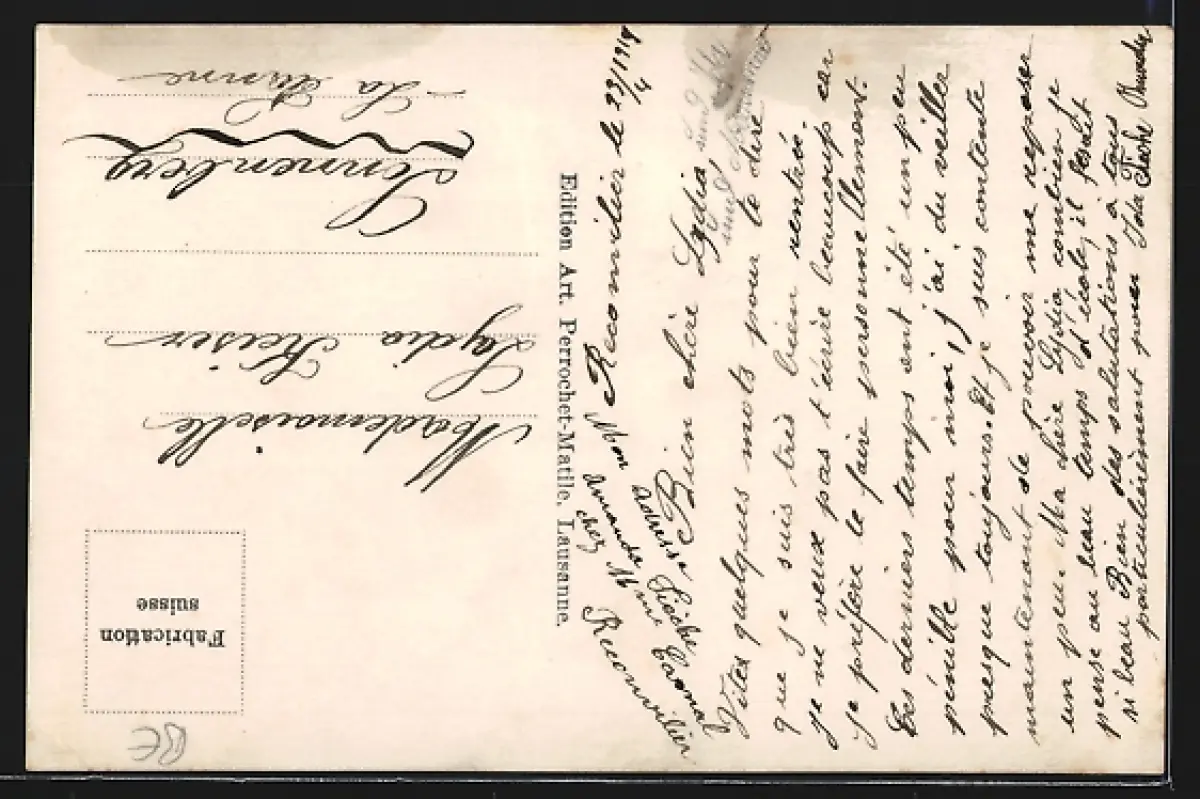 Fabrication
suisse
Mademoiselle
Lydia Keiser
Sonnenberg
La Ferme
Edition Art. Perrochet-Matile, Lausanne.
Reconvilier le 23/4 1919
Bien chère Lydia,
Vites quelques mots pour te dire
que je suis très bien rentré.
Je ne veux pas t'écrire beaucoup car
je préfère le faire personnellement.
Les derniers temps ont été un peu
pénible pour moi, j'ai du veiller
presque toujours. Et je suis contente
maintenant de pouvoir me reposer
un peu. Ma chère Lydia combien je
pense au beau temps d'école, il ferait
si beau. Bien des salutations à tous
particulièrement pour Ida
Mon adresse
Amanda
chez Mme
Reconvilier